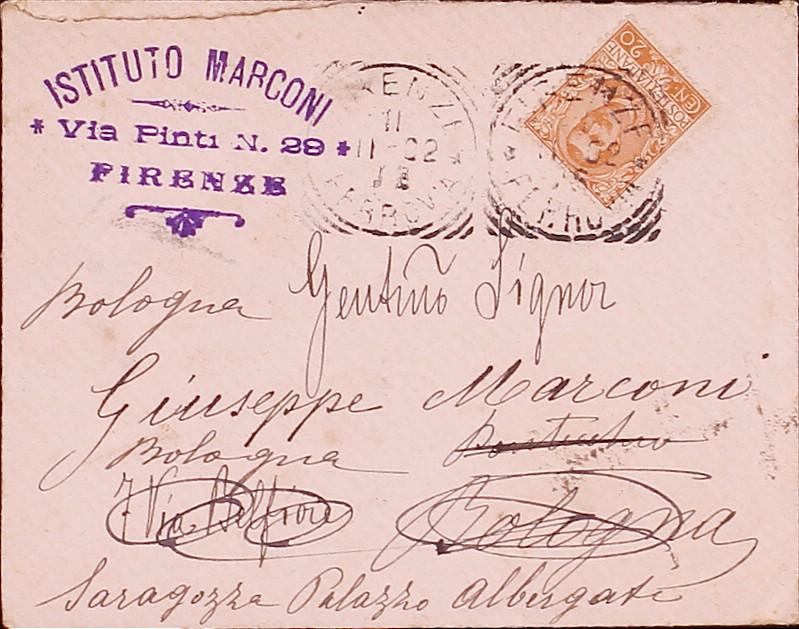 ISTITUTO MARCONI
* Via Pinti N. 29 *
FIRENZE
FIRENZE
11
11-02
FERROVIA
FIRENZE
FERROVIA
POSTE ITALIANE
CEN. 20
Bologna Gentmo Signor
Giuseppe Marconi
Bologna
7 Via Belfiore Bologna
Saragozza Palazzo Albergati